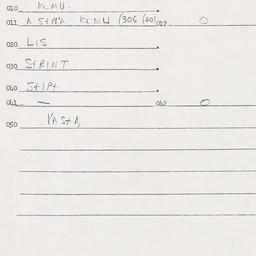 010 KEMU.
011 A STMA KEMU (306 012 0
020 LIS
030 STRINT
040 STIPT
041 — 042 0
050 VASTA